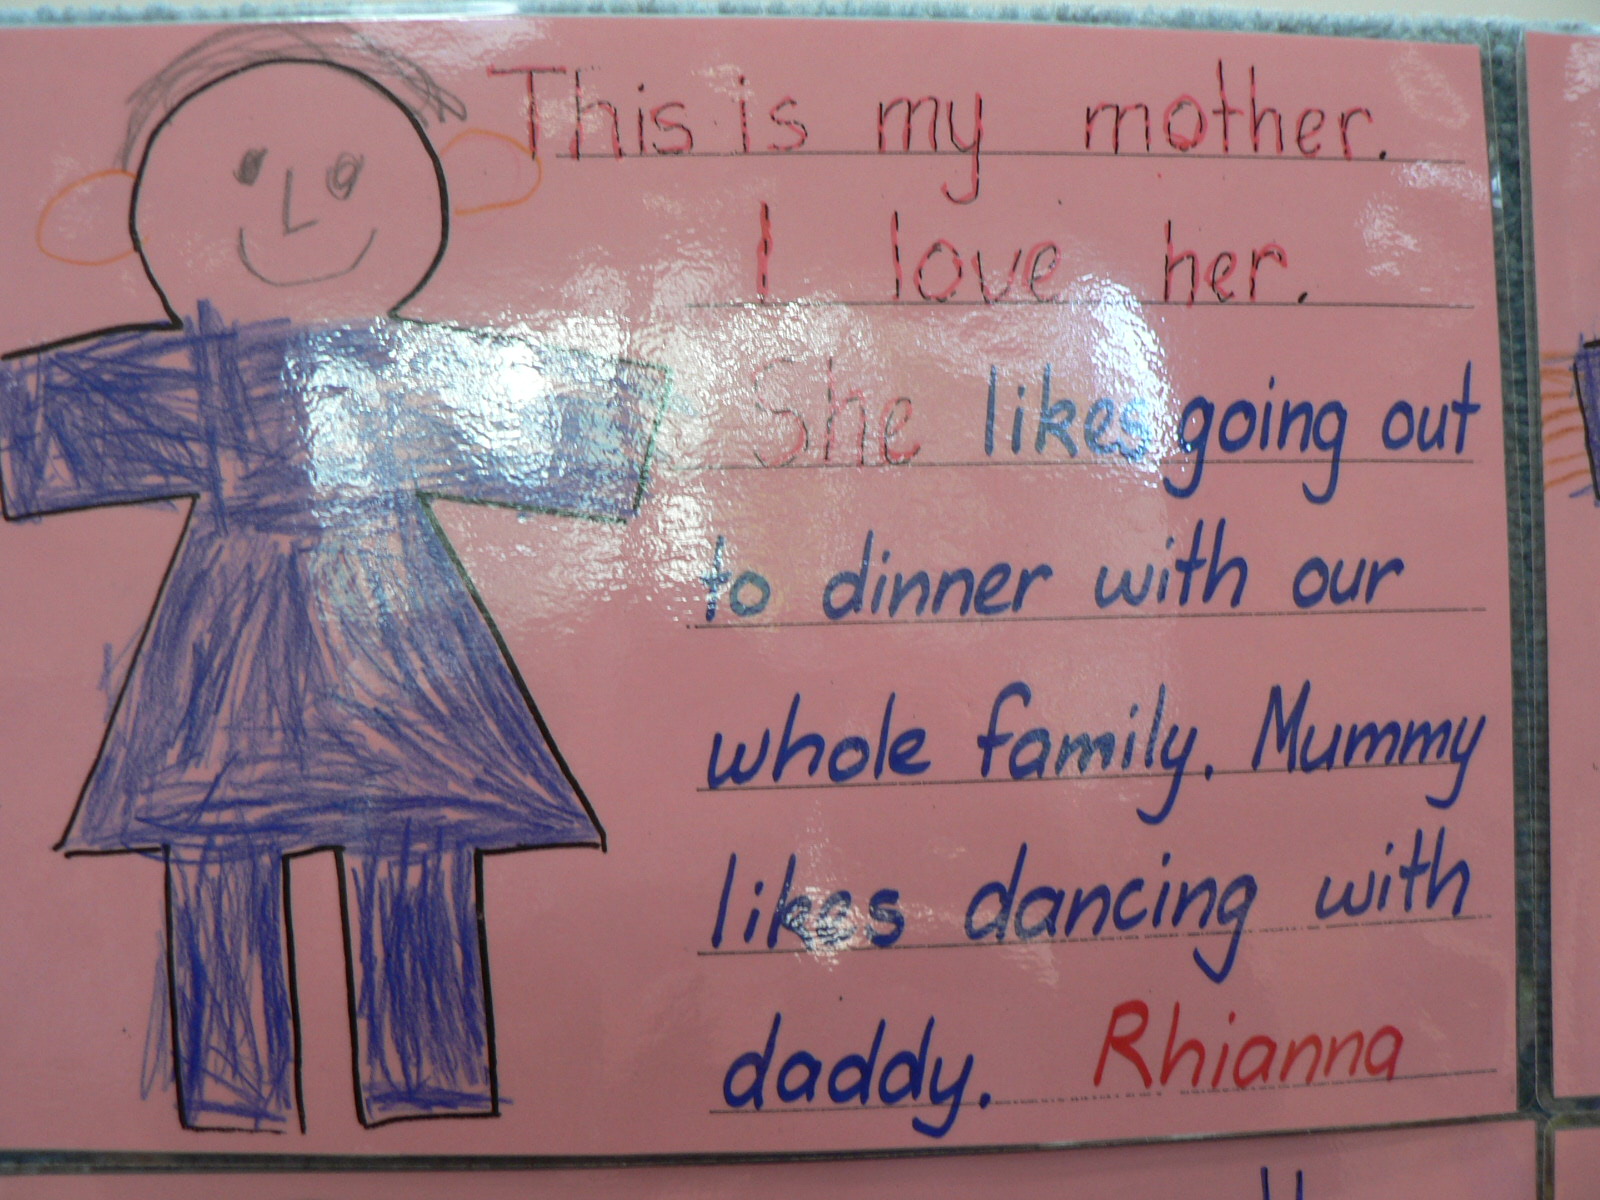 This is my mother.
I love her.
She likes going out
to dinner with our
whole family. Mummy
likes dancing with
daddy. Rhianna